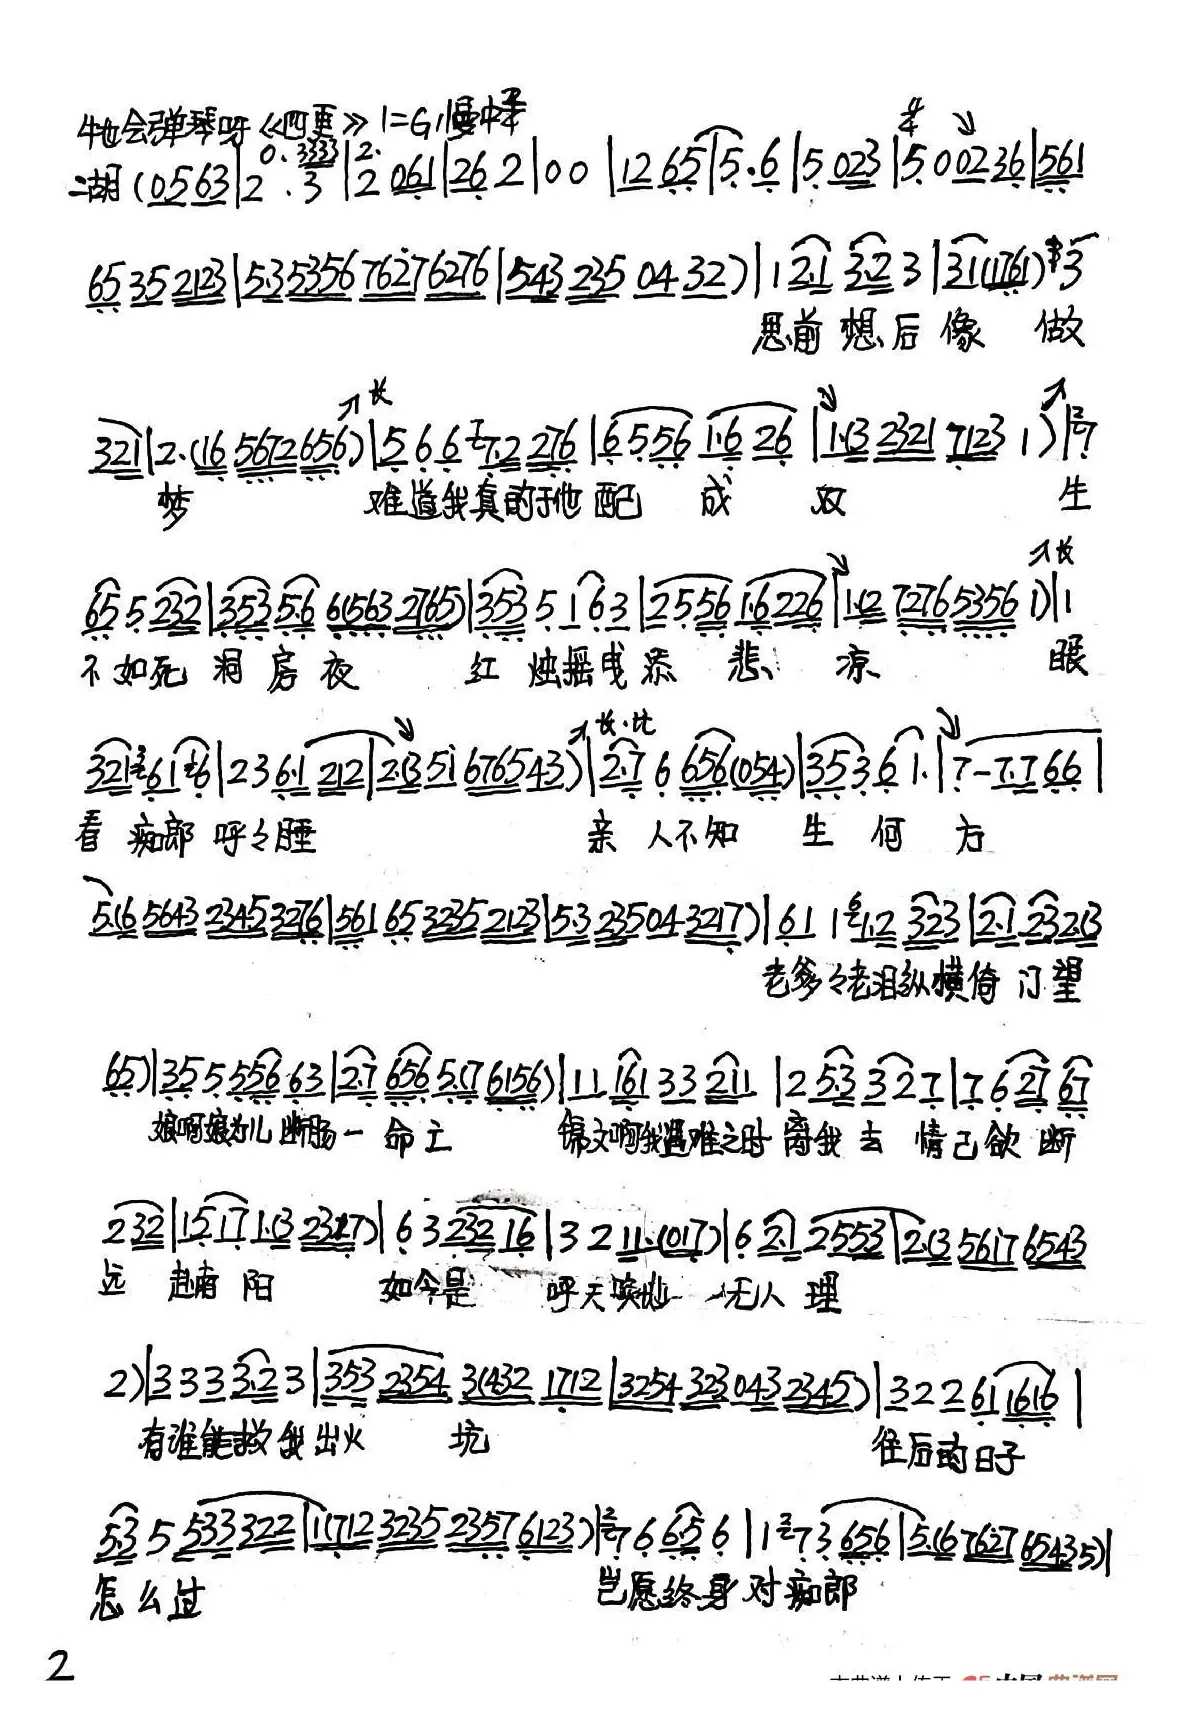 牛也会弹琴呀《四更》1=G 慢中
0.3333 2. 4/4
二胡(0563|2.3|2 061|26 2|00|12 65|5.6|5 023|5 0 02 36|561
65 35 2123|53 5356 7627 6276|543 235 04 32)|1 2.1 3.2 3|31(1761) 3
思前想后像 做
长
321|2.(16 5672 656)|5 6 6 7.2 276|6 5 56 1.6 26|1.(3 2321 7123 1)|7
梦 难道我真的于他配 成 双 生
长
65 5 232|353 5.6 6(563 2765)|353 5 1 6 3|2 5 56 1.6 226|1.(2 7276 5356 1)|1
不如死 洞房夜 红 烛摇曳添 悲 凉 眼
长.比
321 6 1 6|2 3 6.1 212|2.(3 51 676543)|2.7 6 656(054)|353 6 1.|7-7.7 66|
看 痴郎呼々睡 亲 人不知 生 何 方
5.(6 5643 2345 3276|561 65 3235 2123|53 235 04 3217)|61 1 1.2 323|2.1 23 2.(3
老爹々老泪纵横倚 门望
65)|35 5 556 63|2.7 656 5.(7 6156)|11 161 33 211|2 5.3 3 2 7|7 6 27 67
娘啊娘为儿断肠一 命亡 锦文啊我遇难之时离我去 情已欲断
232|15 17 1.(3 2317)|6 3 232 16|3 2 11.(017)|6 2.1 2553|2.(3 5617 6543
远 赴南阳 如今是 呼天唤地 无人 理
2)|3 3 3 3.2 3|353 2354 3(432 1712|3254 323 043 2345)|3 2 2 61 1616|
有谁能救我出火 坑 往后的日子
5.3 5 533 322|1(712 3235 2357 6123)|7 6 6.5 6|1 7 3 656|5.(6 7627 65435)|
怎么过 岂愿终身对 痴郎
2